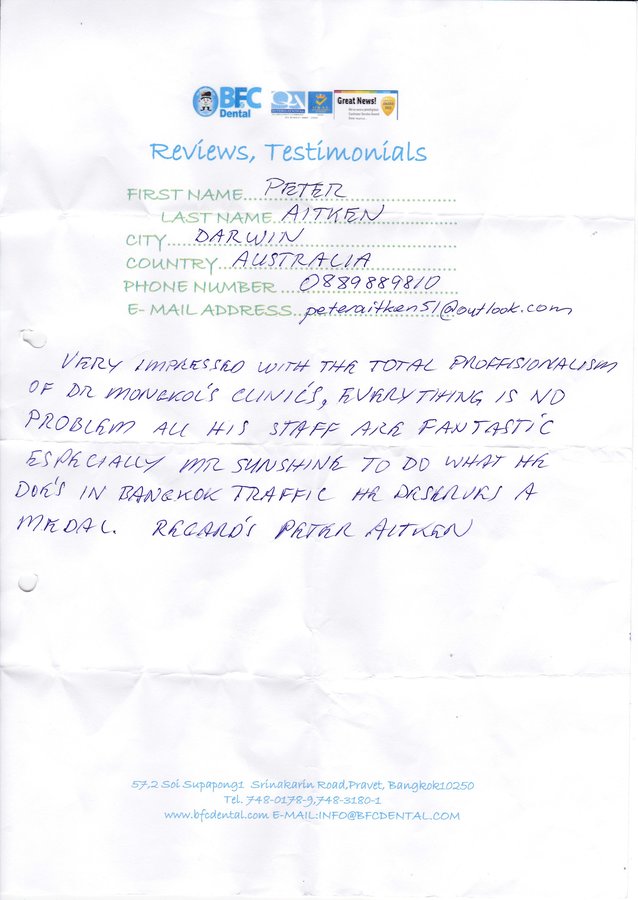 BFC
Dental
QA
Great News!
Reviews, Testimonials
FIRST NAME...PETER
LAST NAME...AITKEN
CITY...DARWIN
COUNTRY...AUSTRALIA
PHONE NUMBER...0889889810
E-MAIL ADDRESS...peteraitken51@outlook.com
VERY IMPRESSED WITH THE TOTAL PROFFISIONALISM
OF DR MONGKOL'S CLINIC'S, EVERYTHING IS NO
PROBLEM ALL HIS STAFF ARE FANTASTIC
ESPECIALLY MR SUNSHINE TO DO WHAT HE
DOE'S IN BANGKOK TRAFFIC HE DESERVES A
MEDAL. REGARD'S PETER AITKEN
57,2 Soi Supapong1 Srinakarin Road,Pravet, Bangkok10250
Tel. 748-0178-9,748-3180-1
www.bfcdental.com E-MAIL:INFO@BFCDENTAL.COM